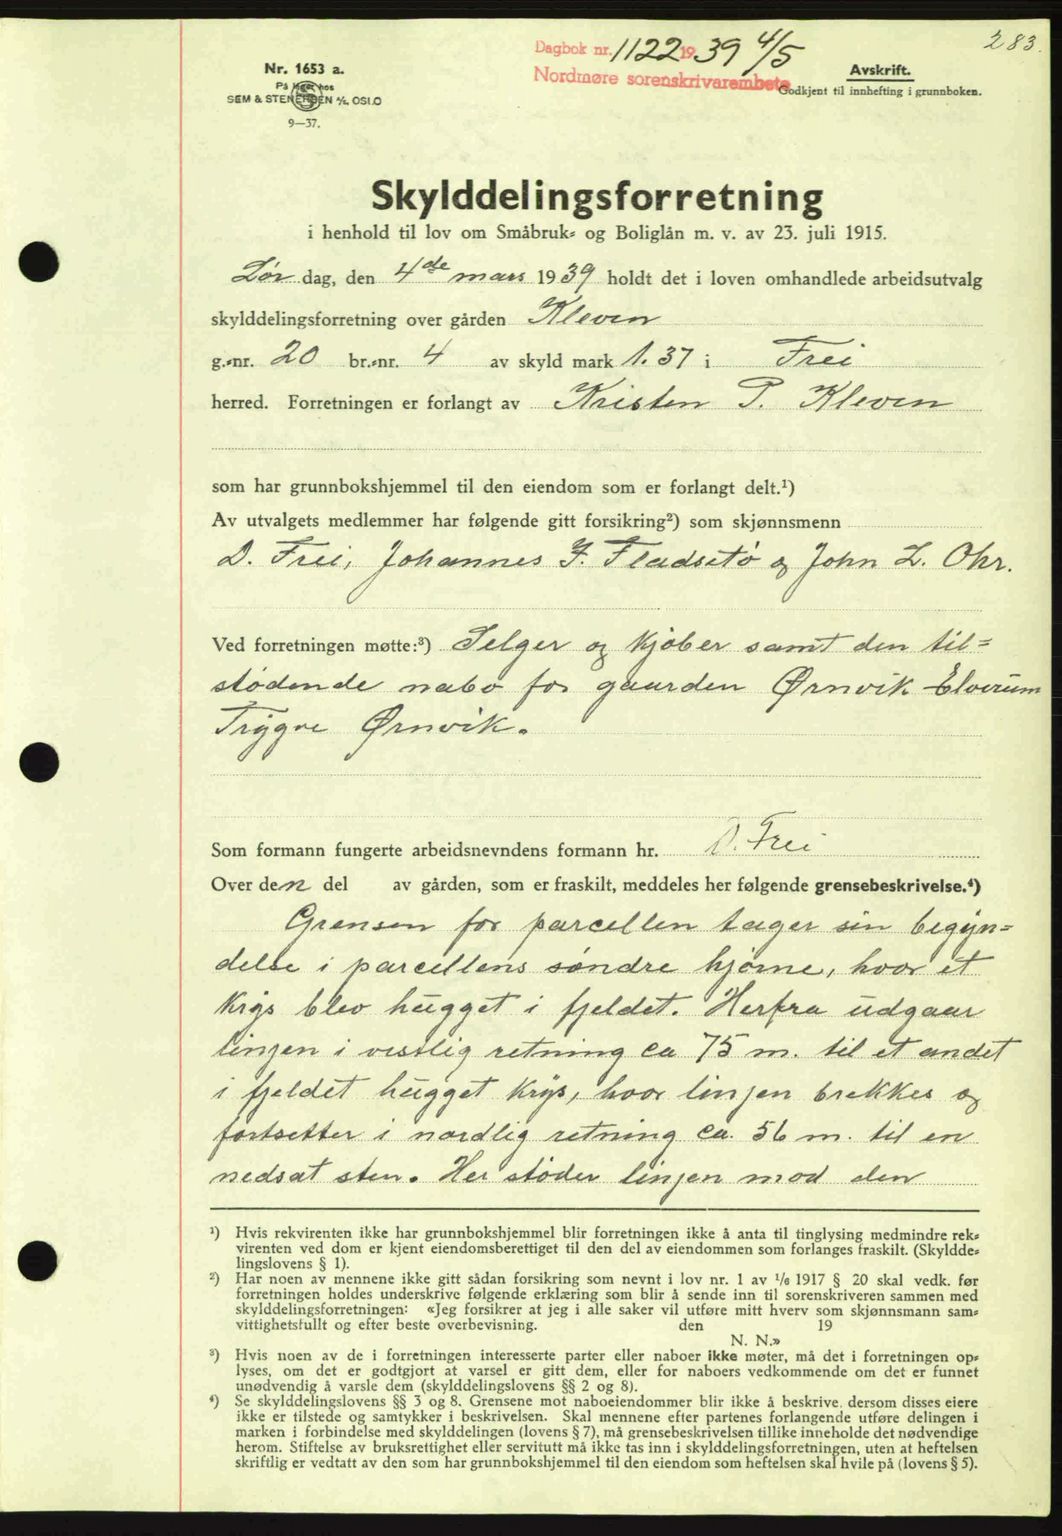 283.
Dagbok nr. 1122 1939 4/5
Nordmøre sorenskrivarembete
Nr. 1653 a.
På lager hos
SEM & STENERSEN A/S, OSLO
9—37.
Avskrift.
Godkjent til innhefting i grunnboken.
Skylddelingsforretning
i henhold til lov om Småbruk- og Boliglån m. v. av 23. juli 1915.
Lør dag, den 4de mars 1939 holdt det i loven omhandlede arbeidsutvalg
skylddelingsforretning over gården Kleven
g.-nr. 20 br.-nr. 4 av skyld mark 1.37 i Frei
herred. Forretningen er forlangt av Kristen P. Kleven
som har grunnbokshjemmel til den eiendom som er forlangt delt.¹)
Av utvalgets medlemmer har følgende gitt forsikring²) som skjønnsmenn
D. Frei, Johannes J. Fladsetø og John L. Ohr.
Ved forretningen møtte:³) Selger og kjøber samt den til-
stødende nabo for gaarden Ørnvik Elverum
Trygve Ørnvik.
Som formann fungerte arbeidsnevndens formann hr. D. Frei
Over den del av gården, som er fraskilt, meddeles her følgende grensebeskrivelse.⁴)
Grensen for parcellen tager sin begyn-
delse i parcellens søndre hjørne, hvor et
krys blev hugget i fjeldet. Herfra udgaar
linjen i vestlig retning ca 75 m. til et andet
i fjeldet hugget krys, hvor linjen brekkes og
fortsetter i nordlig retning ca. 56 m. til en
nedsat sten. Her støder linjen mod den
¹) Hvis rekvirenten ikke har grunnbokshjemmel blir forretningen ikke å anta til tinglysing medmindre rek-
virenten ved dom er kjent eiendomsberettiget til den del av eiendommen som forlanges fraskilt. (Skyldde-
lingslovens § 1).
²) Har noen av mennene ikke gitt sådan forsikring som nevnt i lov nr. 1 av 1/6 1917 § 20 skal vedk. før
forretningen holdes underskrive følgende erklæring som blir å sende inn til sorenskriveren sammen med
skylddelingsforretningen: «Jeg forsikrer at jeg i alle saker vil utføre mitt hverv som skjønnsmann sam-
vittighetsfullt og efter beste overbevisning. den 19
N. N.»
³) Hvis noen av de i forretningen interesserte parter eller naboer ikke møter, må det i forretningen op-
lyses, om det er godtgjort at varsel er gitt dem, eller for naboers vedkommende om det er funnet
unødvendig å varsle dem (skylddelingslovens §§ 2 og 8).
⁴) Se skylddelingslovens §§ 3 og 8. Grensene mot naboeiendommer blir ikke å beskrive, dersom disses eiere
ikke er tilstede og samtykker i beskrivelsen. Skal mennene efter partenes forlangende utføre delingen i
marken i forbindelse med skylddelingen (lovens § 7), må grensebeskrivelsen tillike inneholde det nødvendige
herom. Stiftelse av bruksrettighet eller servitutt må ikke tas inn i skylddelingsforretningen, uten at heftelsen
skriftlig er vedtatt av den som har grunnbokshjemmel til den eiendom som heftelsen skal hvile på (lovens § 5).